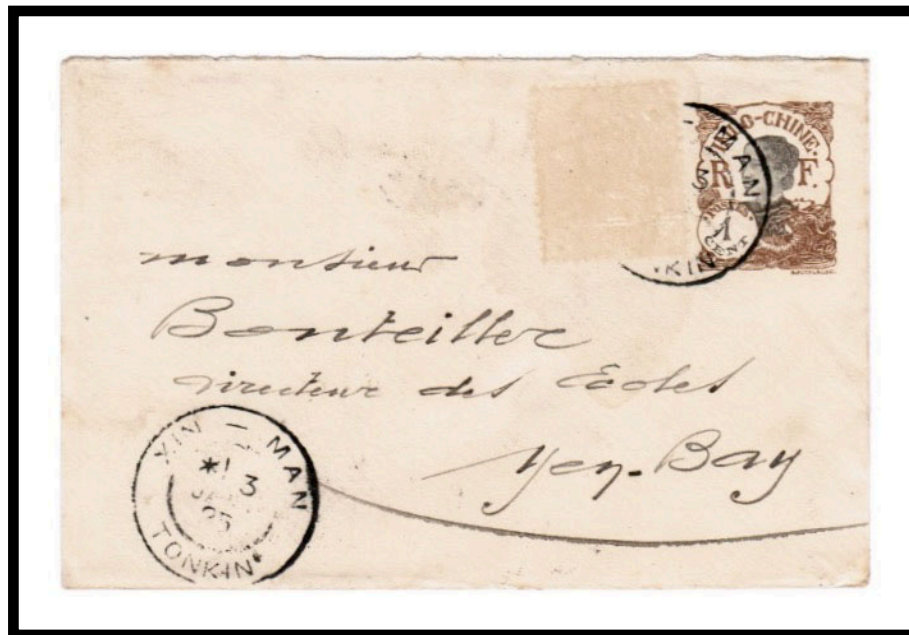 INDO-CHINE
R F
POSTES
1
CENT
MAN
3
KIN
monsieur
Bonteiller
Directeur des Ecoles
Yen-Bay
XIN - MAN
*1
3
TONKIN